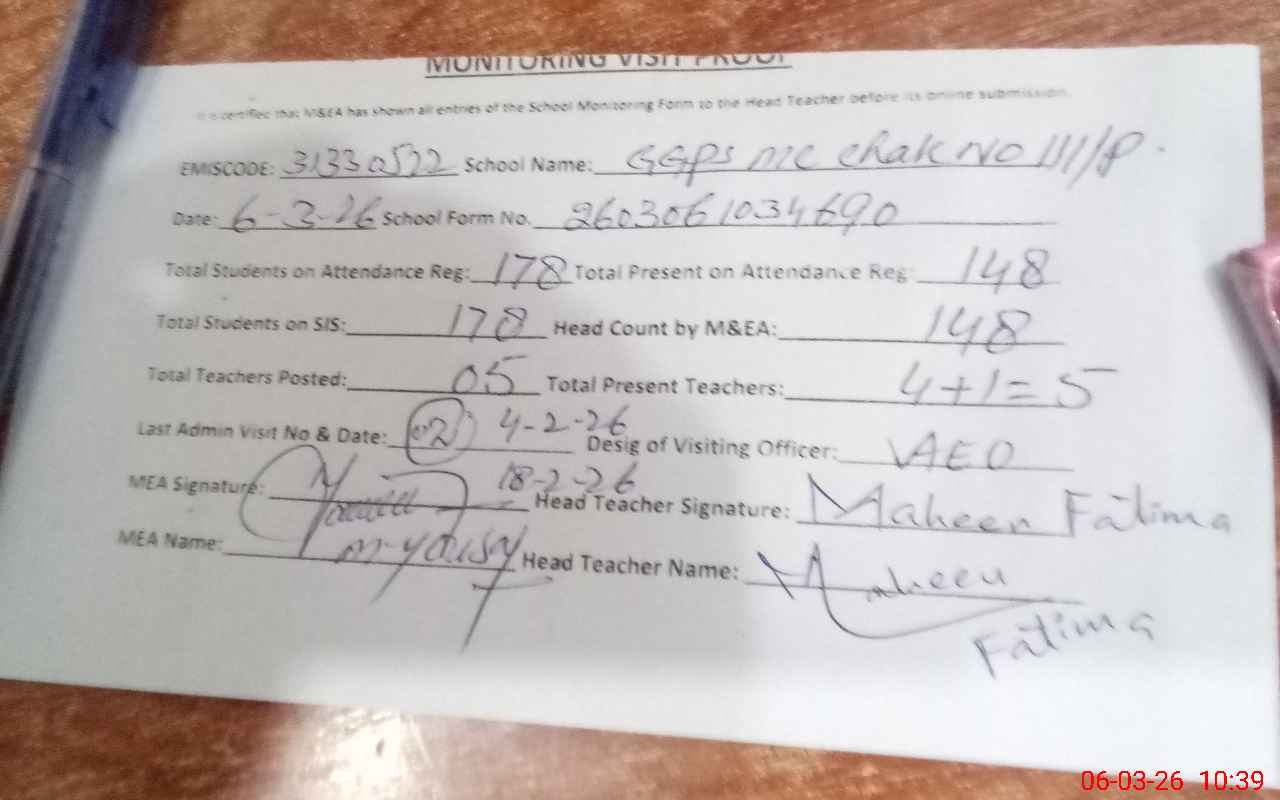 MONITORING VISIT PROOF
It is certified that M&EA has shown all entries of the School Monitoring Form to the Head Teacher before its online submission.
EMISCODE: 31330522 School Name: GGPS MC Chak No 111/P.
Date: 6-3-26 School Form No. 2603061034690
Total Students on Attendance Reg: 178 Total Present on Attendance Reg: 148
Total Students on SIS: 178 Head Count by M&EA: 148
Total Teachers Posted: 05 Total Present Teachers: 4+1=5
Last Admin Visit No & Date: 02 4-2-26 Desig of Visiting Officer: AEO
18-2-26
MEA Signature: Head Teacher Signature: Maheen Fatima
MEA Name: Head Teacher Name: Maheen
Fatima
06-03-26 10:39